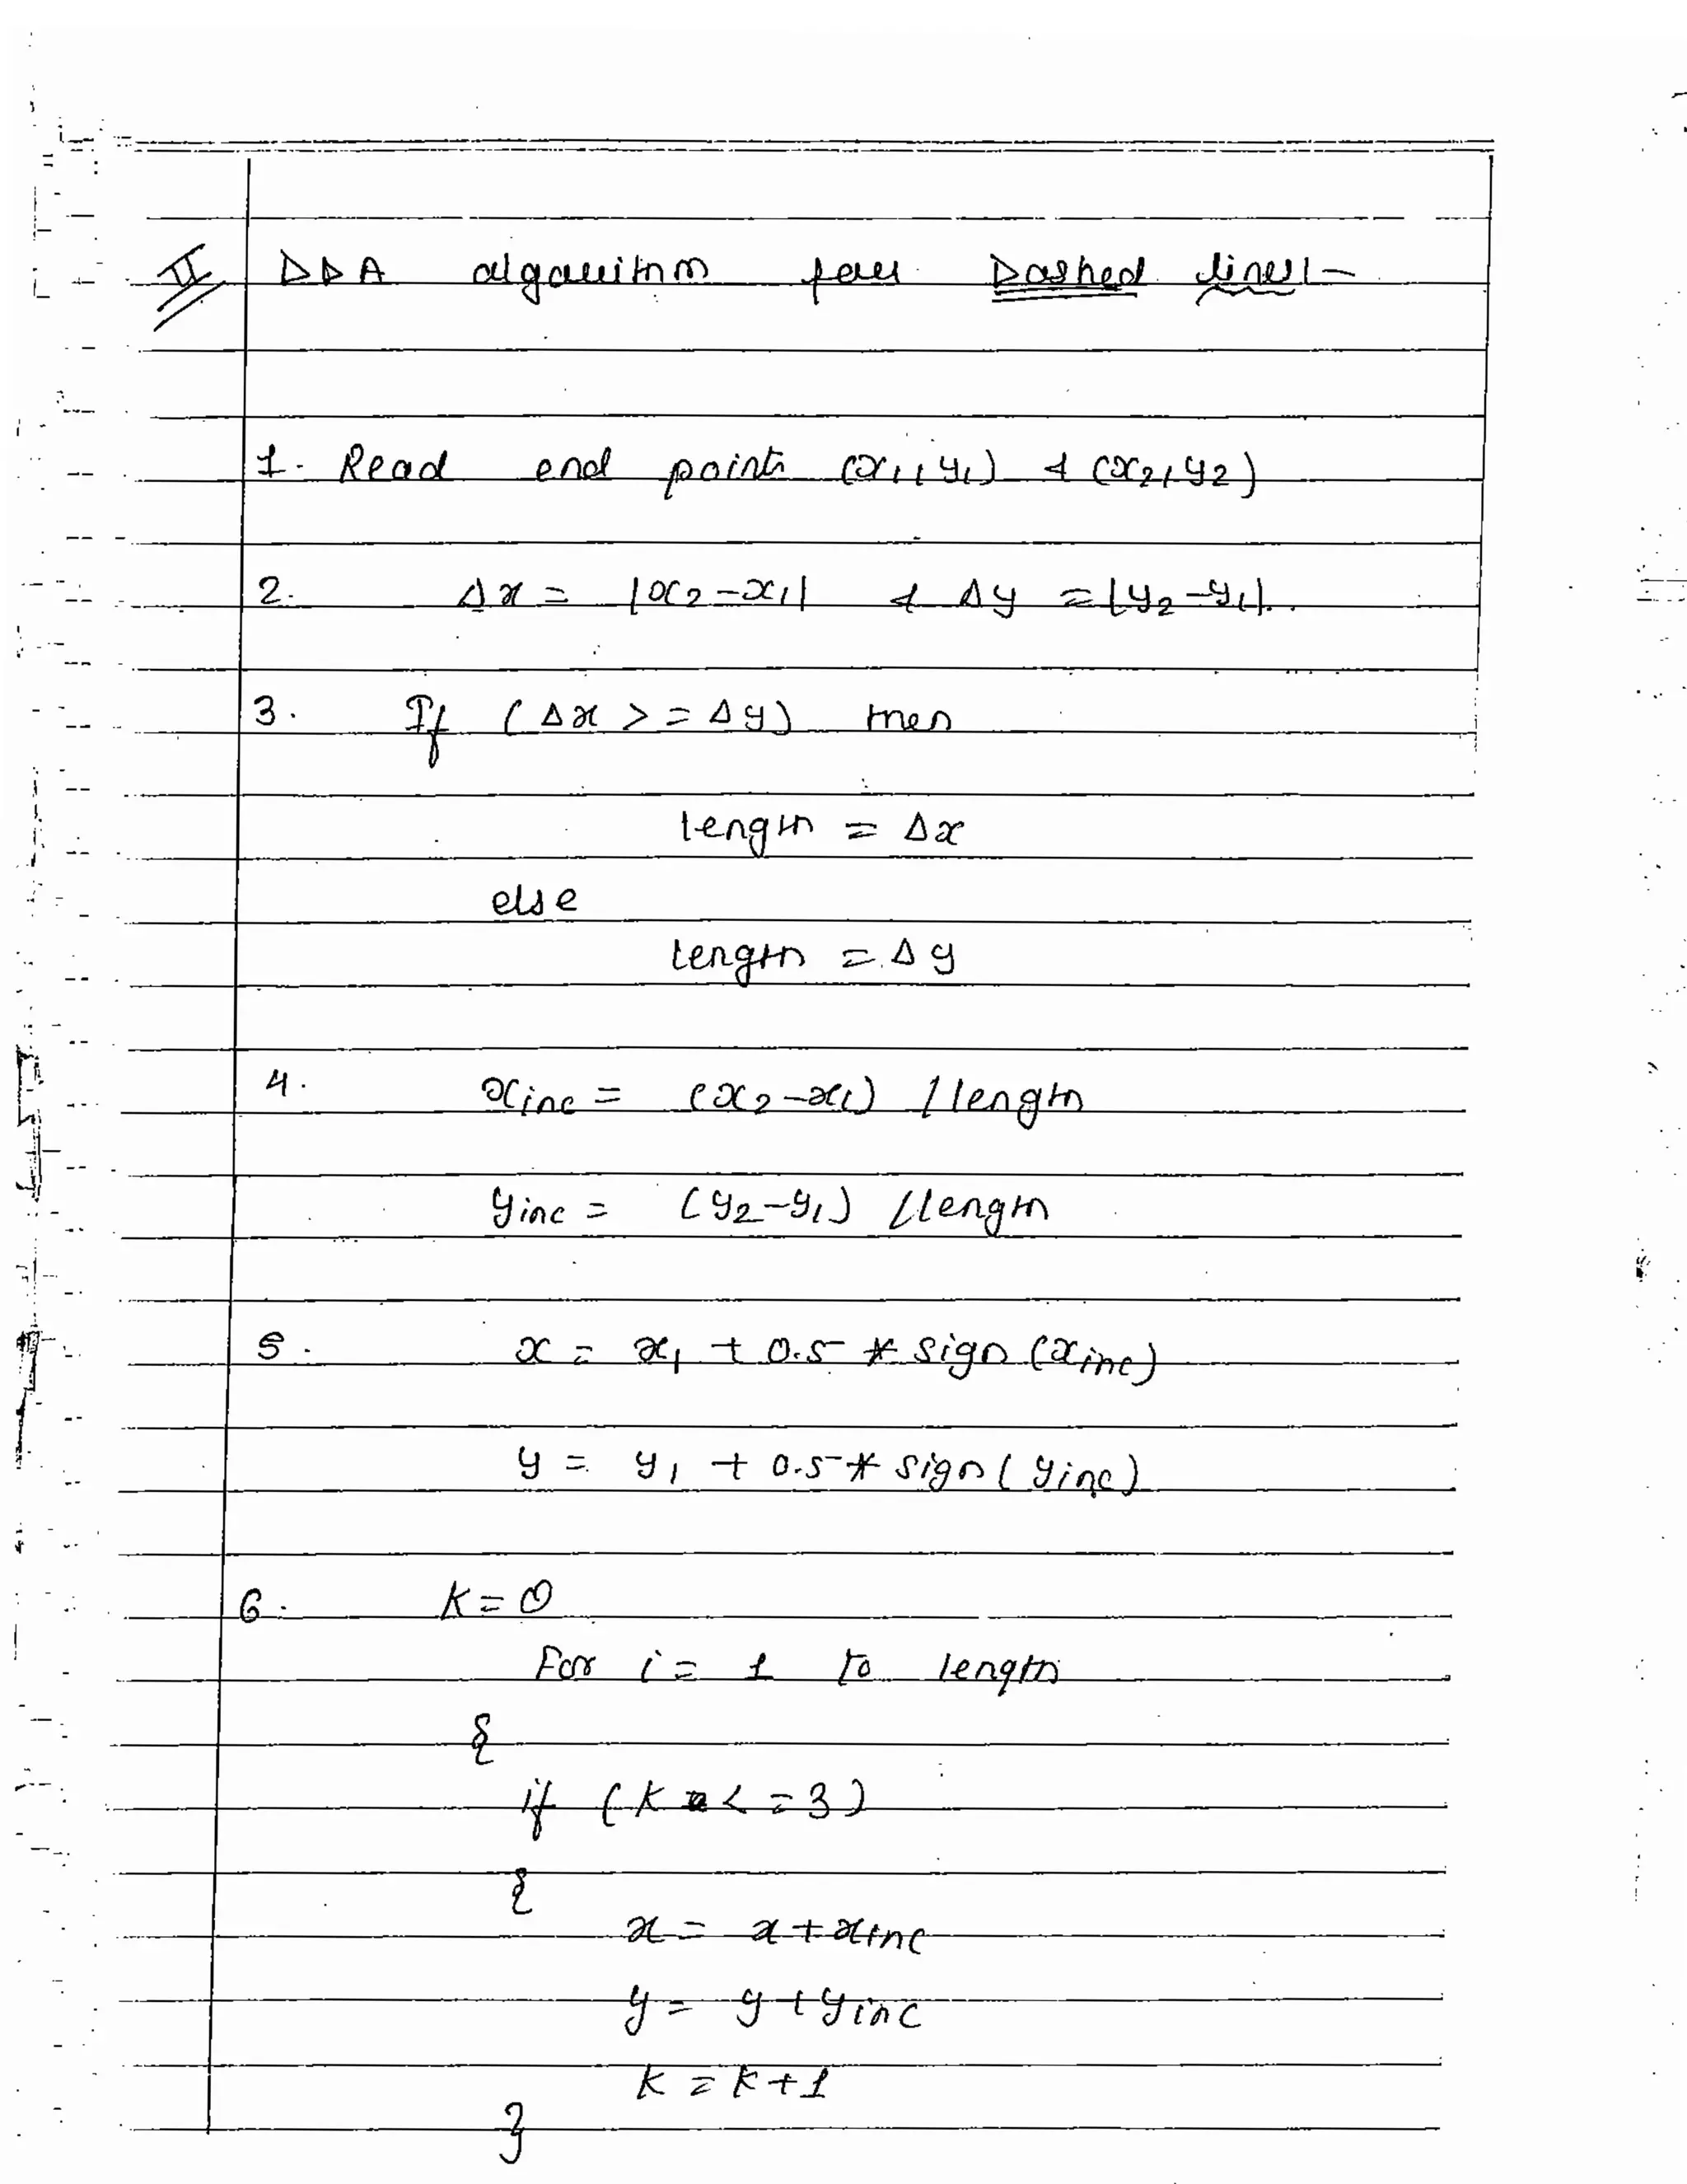 II DDA algorithm for Dashed line:-
1. Read end points (x1, y1) & (x2, y2)
2. Δx = |x2-x1| & Δy = |y2-y1|.
3. If (Δx >= Δy) then
length = Δx
else
length = Δy
4. xinc = (x2-x1) / length
yinc = (y2-y1) / length
5. x = x1 + 0.5 * sign (xinc)
y = y1 + 0.5 * sign (yinc)
6. K = 0
For i = 1 to length
{
if (K <= 3)
{
x = x + xinc
y = y + yinc
K = K + 1
}